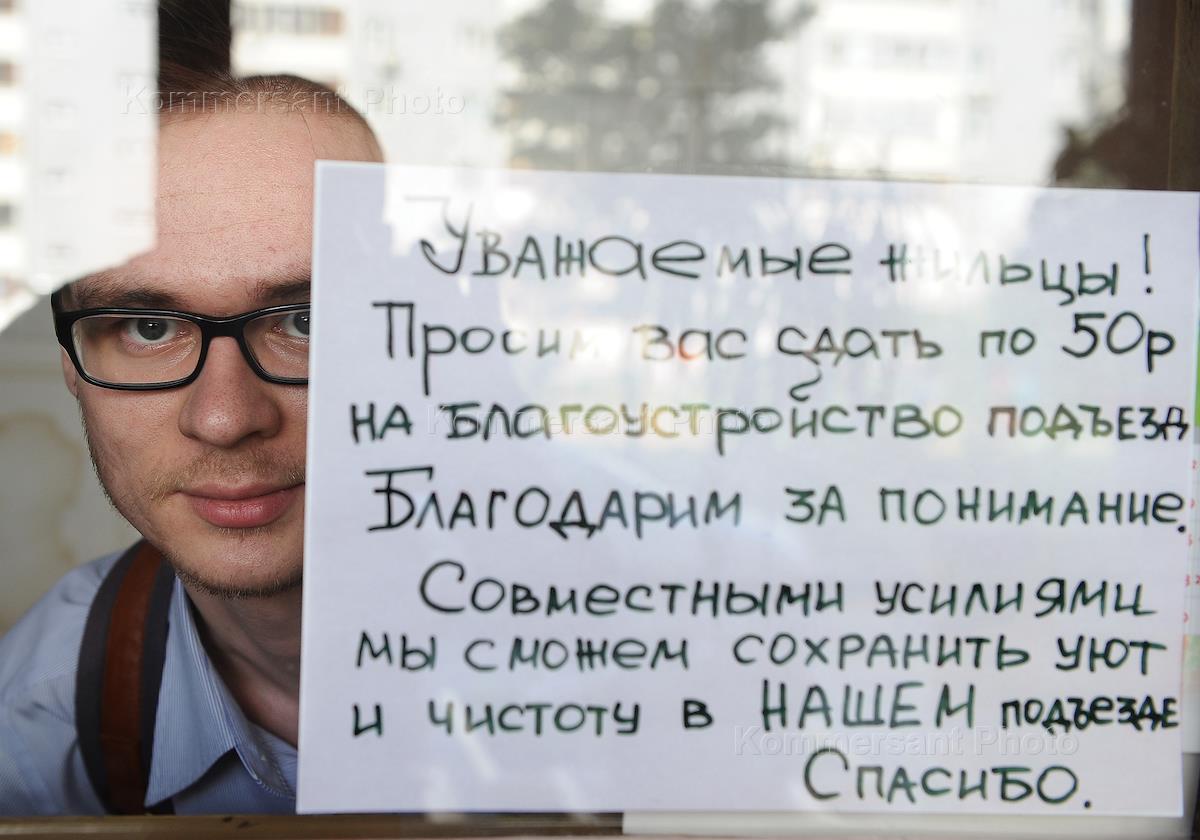 Kommersant Photo
Уважаемые жильцы!
Просим вас сдать по 50р
на благоустройство подъезд
Kommersant Photo
Благодарим за понимание.
Совместными усилиями
мы сможем сохранить уют
и чистоту в НАШЕМ подъезде
Kommersant Photo
Спасибо.